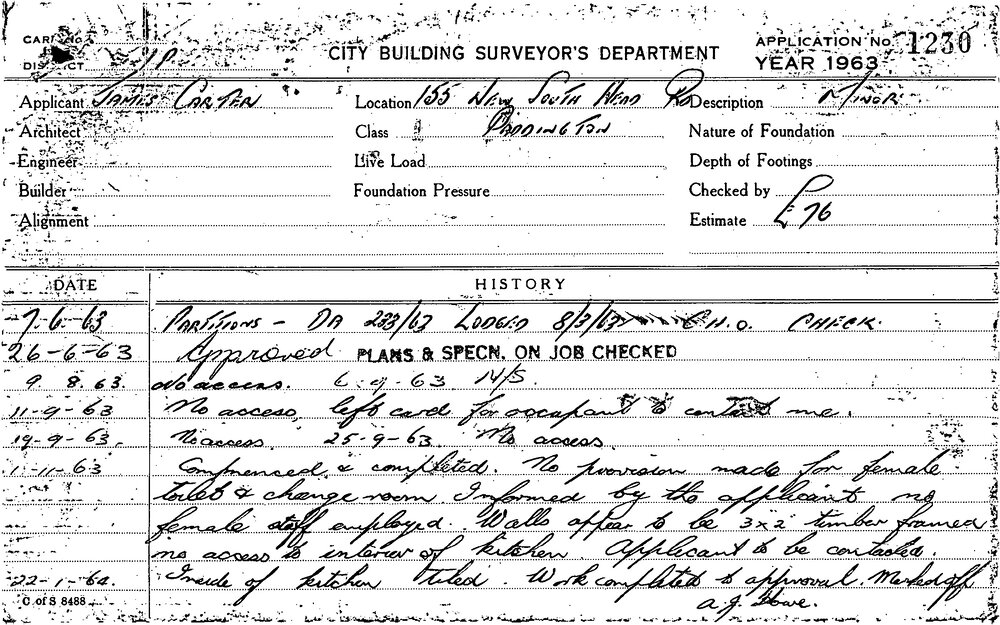 CARD No
DISTRICT
CITY BUILDING SURVEYOR'S DEPARTMENT
APPLICATION No. 1230
YEAR 1963
Applicant JAMES CARTER
Location 155 NEW SOUTH HEAD RD
Description MINOR
Architect
Class PADDINGTON
Nature of Foundation
Engineer
Live Load
Depth of Footings
Builder
Foundation Pressure
Checked by
Alignment
Estimate £76
DATE HISTORY
7-6-63 PARTITIONS - DA 283/63 LODGED 8/3/63 C.H.O. CHECK.
26-6-63 Approved PLANS & SPECN. ON JOB CHECKED
9. 8. 63. No access. 6-9-63 N/S.
11-9-63 No access, left card for occupant to contact me.
19-9-63. No access 25-9-63. No access
1-11-63 Commenced & completed. No provision made for female
toilet & change room Informed by the applicant no
female staff employed. Walls appear to be 3x2 timber framed
no access to interior of kitchen. Applicant to be contacted.
22-1-64. Inside of kitchen tiled. Work completed to approval. Marked off
C of S 8488 a.j. Howe.